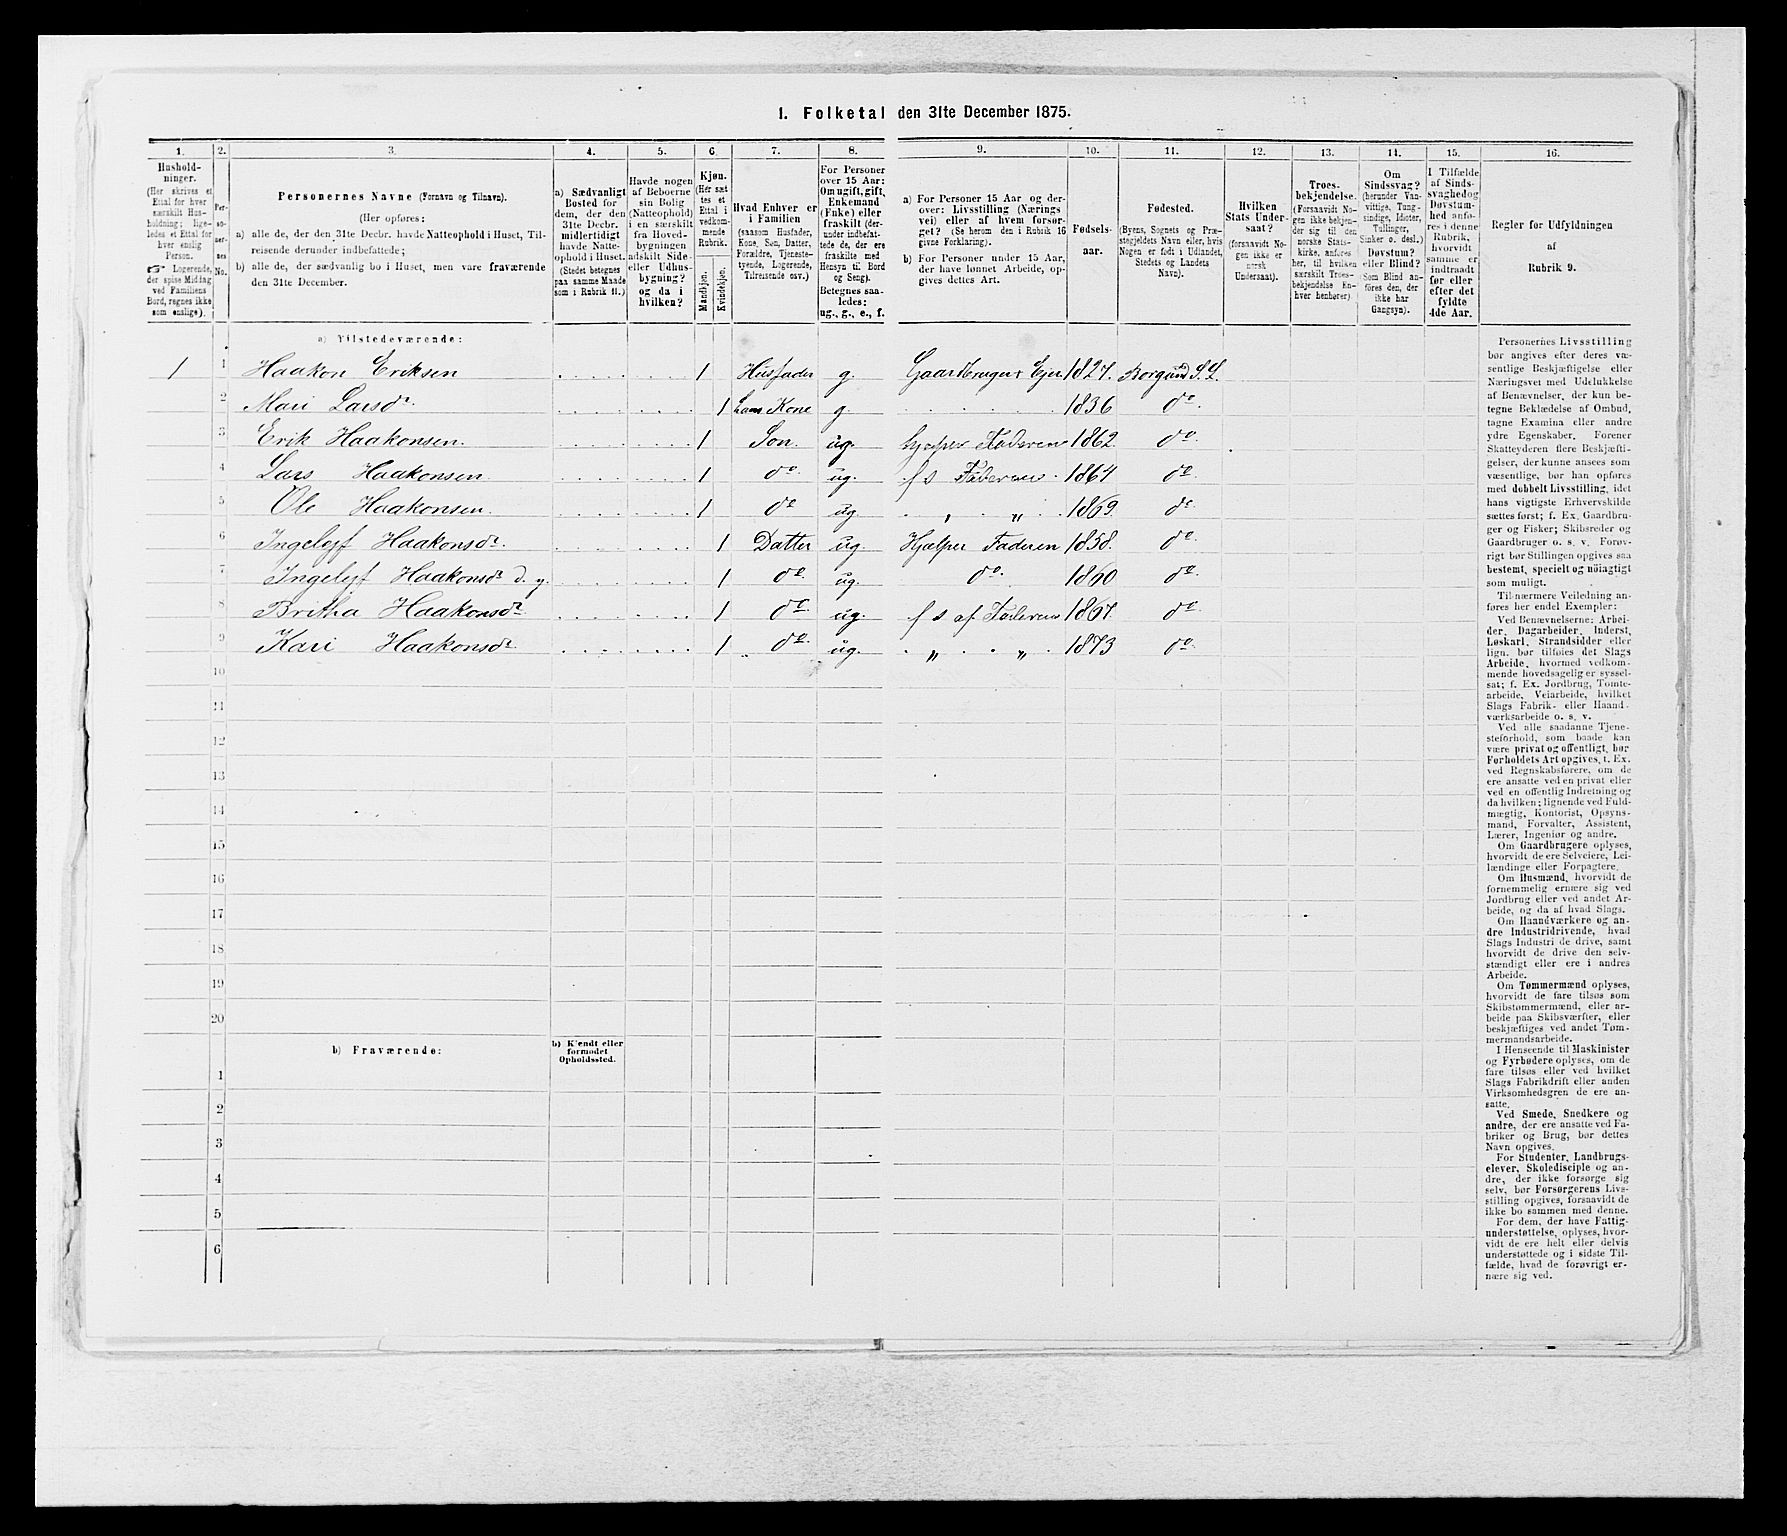 1. Folketal den 31te December 1875.
1. 2. 3. 4. 5. 6. 7. 8. 9. 10. 11. 12. 13. 14. 15. 16.
Hushold-
ninger.
(Her skrives et
Ettal for hver
særskilt Hus-
holdning; lige-
ledes et Ettal for
hver enslig
Person.
☞ Logerende,
der spise Middag
ved Familiens
Bord, regnes ikke
som enslige).
Per-
so-
ner-
nes
No.
Personernes Navne (Fornavn og Tilnavn).
(Her opføres:
a) alle de, der den 31te Decbr. havde Natteophold i Huset, Til-
reisende derunder indbefattede;
b) alle de, der sædvanlig bo i Huset, men vare fraværende
den 31te December.
a) Sædvanligt
Bosted for
dem, der den
31te Decbr.
midlertidigt
havde Natte-
ophold i Huset.
(Stedet betegnes
paa samme Maade
som i Rubrik 11.)
Havde nogen
af Beboerne
sin Bolig
(Natteophold)
i en særskilt
fra Hoved-
bygningen
adskilt Side-
eller Udhus-
bygning?
og da i
hvilken?
Kjøn.
(Her sæt-
tes et
Ettal i
vedkom-
mende
Rubrik.
Mandkjøn.
Kvindekjøn.
Hvad Enhver er
i Familien
(saasom Husfader,
Kone, Søn, Datter,
Forældre, Tjeneste-
tyende, Logerende,
Tilreisende osv.)
For Personer
over 15 Aar:
Om ugift, gift,
Enkemand
(Enke) eller
fraskilt (der-
under indbefat-
tede de, der ere
fraskilte med
Hensyn til Bord
og Seng).
Betegnes saa-
ledes:
ug., g., e., f.
a) For Personer 15 Aar og der-
over: Livsstilling (Nærings
vei) eller af hvem forsør-
get? (Se herom den i Rubrik 16
givne Forklaring).
b) For Personer under 15 Aar,
der have lønnet Arbeide, op-
gives dettes Art.
Fødsels-
aar.
Fødested.
(Byens, Sognets og Præ-
stegjeldets Navn eller, hvis
Nogen er født i Udlandet,
Stedets og Landets
Navn).
Hvilken
Stats Under-
saat?
(forsaavidt No-
gen ikke er
norsk
Undersaat).
Troes-
bekjendelse.
(Forsaavidt No-
gen ikke bekjen-
der sig til den
norske Stats-
kirke, anføres
her, til hvilken
særskilt Troes-
bekjendelse En-
hver henhører)
Om
Sindssvag?
(herunder Van-
vittige, Tung-
sindige, Idioter,
Tullinger,
Sinker o. desl.)
Døvstum?
eller Blind?
(Som Blind an-
føres den, der
ikke har
Gangsyn).
I Tilfælde
af Sinds-
svaghed og
Døvstum-
hed anfø-
res i denne
Rubrik,
hvorvidt
samme er
indtraadt
før eller
efter det
fyldte
4de Aar.
Regler for Udfyldningen
af
Rubrik 9.
a) Tilstedeværende:
1 1 Haakon Eriksen 1 Husfader g. Gaardbruger Ejer 1827. Borgund S. L.
2 Mari Larsdr. 1 hans Kone g. 1836 do.
3 Erik Haakonsen. 1 Søn. ug. hjælper Faderen 1862 do.
4 Lars Haakonsen 1 do ug. f s Faderens 1864 do
5 Ole Haakonsen. 1 do ug " " 1869. do
6 Ingelejf Haakonsdr. 1 Datter ug. Hjælper Faderen 1858. do.
7 Ingelejf Haakonsdr d. y. 1 do. ug. do. 1860 do.
8 Britha Haakonsdr 1 do. ug. f s af Faderens 1867. do
9 Kari Haakonsdr. 1 do. ug. " " 1873 do.
10
11
12
13
14
15
16
17
18
19
20
b) Fraværende:
b) Kjendt eller
formodet
Opholdssted.
1
2
3
4
5
6
Personernes Livsstilling
bør angives efter deres væ-
sentlige Beskjæftigelse eller
Næringsvei med Udelukkelse
af Benævnelser, der kun be-
tegne Beklædelse af Ombud,
tagne Examina eller andre
ydre Egenskaber. Forener
Skatteyderen flere Beskjæfti-
gelser, der kunne ansees som
væsentlige, bør han opføres
med dobbelt Livsstilling, idet
hans vigtigste Erhvervskilde
sættes først; f. Ex. Gaardbru-
ger og Fisker; Skibsreder og
Gaardbruger o. s. v. Forøv-
rigt bør Stillingen opgives saa
bestemt, specielt og nöiagtigt
som muligt.
Til nærmere Veiledning an-
føres her endel Exempler:
Ved Benævnelserne: Arbei-
der, Dagarbeider, Inderst,
Løskarl, Strandsidder eller
lign. bør tilføies det Slags
Arbeide, hvormed vedkom-
mende hovedsagelig er syssel-
sat; f. Ex. Jordbrug, Tømte-
arbeide, Veiarbeide, hvilket
Slags Fabrik- eller Haand-
værksarbeide o. s. v.
Ved alle saadanne Tjene-
steforhold, som baade kan
være privat og offentligt, bør
Forholdets Art opgives, f. Ex.
ved Regnskabsførere, om de
ere ansatte ved en privat eller
ved en offentlig Indretning og
da hvilken; lignende ved Fuld-
mægtig, Kontorist, Opsyns-
mand, Forvalter, Assistent,
Lærer, Ingeniør og andre.
Om Gaardbrugere oplyses,
hvorvidt de ere Selveiere, Lei-
lændinge eller Forpagtere.
Om Husmænd, hvorvidt de
fornemmelig ernære sig ved
Jordbrug eller ved andet Ar-
beide, og da af hvad Slags.
Om Haandværkere og an-
dre Industridrivende, hvad
Slags Industri de drive, samt
hvorvidt de drive den selv-
stændigt eller ere i andres
Arbeide.
Om Tømmermænd oplyses,
hvorvidt de fare tilsøs som
Skibstømmermænd, eller ar-
beide paa Skibsværfter, eller
beskjæftiges ved andet Tøm-
mermandsarbeide.
I Henseende til Maskinister
og Fyrbødere oplyses, om de
fare tilsøs eller ved hvilket
Slags Fabrikdrift eller anden
Virksomhedsgren de ere an-
satte.
Ved Smede, Snedkere og
andre, der ere ansatte ved Fa-
briker og Brug, bør dettes
Navn opgives.
For Studenter, Landbrugs-
elever, Skoledisciple og an-
dre, der ikke forsørge sig
selv, bør Forsørgerens Livs-
stilling opgives, forsaavidt de
ikke bo sammen med denne.
For dem, der have Fattig-
understøttelse, oplyses, hvor-
vidt de ere helt eller delvis
understøttede og i sidste Til-
fælde, hvad de forøvrigt er-
nære sig ved.